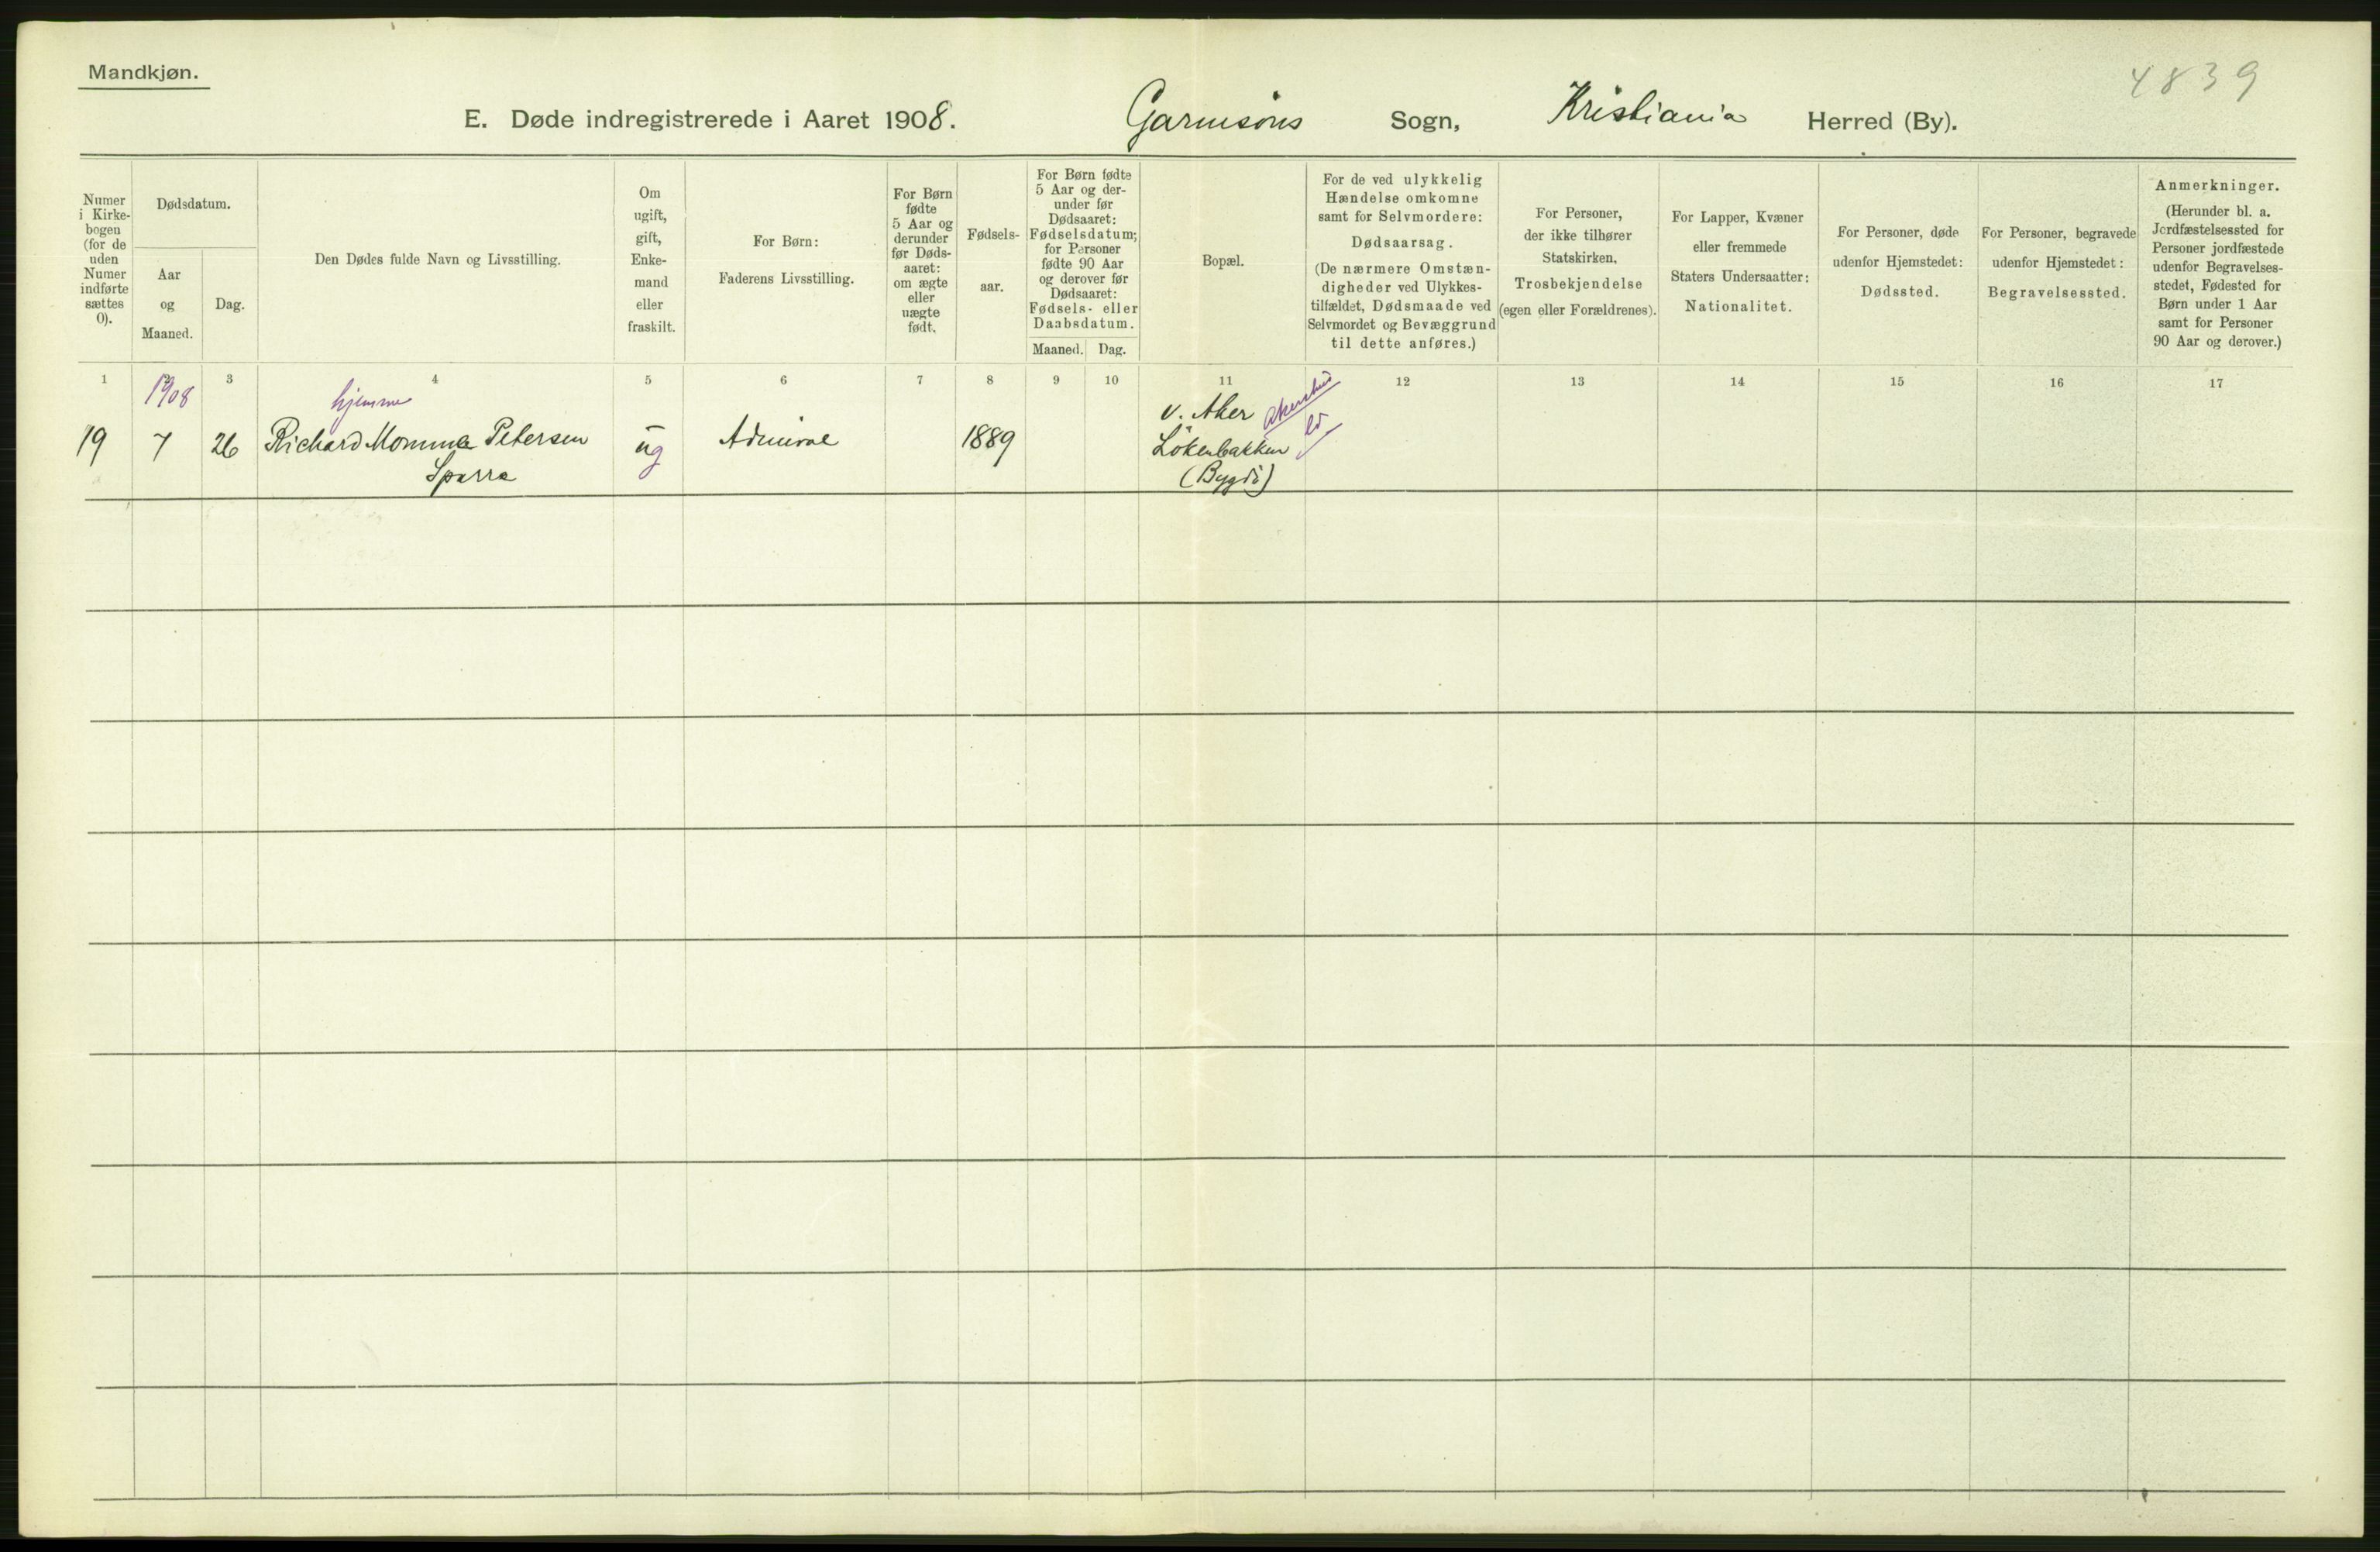 Mandkjøn.
4839
E. Døde indregistrerede i Aaret 1908. Garnisons Sogn, Kristiania Herred (By).
Numer
i Kirke-
bogen
(for de
uden
Numer
indførte
sættes
0).
Dødsdatum.
Aar
og
Maaned.
Dag.
Den Dødes fulde Navn og Livsstilling.
Om
ugift,
gift,
Enke-
mand
eller
fraskilt.
For Børn:
Faderens Livsstilling.
For Børn
fødte
5 Aar og
derunder
før Døds-
aaret:
om ægte
eller
uægte
født.
Fødsels-
aar.
For Børn fødte
5 Aar og der-
under før
Dødsaaret:
Fødselsdatum;
for Personer
fødte 90 Aar
og derover før
Dødsaaret:
Fødsels- eller
Daabsdatum.
Maaned. Dag.
Bopæl.
For de ved ulykkelig
Hændelse omkomne
samt for Selvmordere:
Dødsaarsag.
(De nærmere Omstæn-
digheder ved Ulykkes-
tilfældet, Dødsmaade ved
Selvmordet og Bevæggrund
til dette anføres.)
For Personer,
der ikke tilhører
Statskirken,
Trosbekjendelse
(egen eller Forældrenes).
For Lapper, Kvæner
eller fremmede
Staters Undersaatter:
Nationalitet.
For Personer, døde
udenfor Hjemstedet:
Dødssted.
For Personer, begravede
udenfor Hjemstedet:
Begravelsessted.
Anmerkninger.
(Herunder bl. a.
Jordfæstelsessted for
Personer jordfæstede
udenfor Begravelses-
stedet, Fødested for
Børn under 1 Aar
samt for Personer
90 Aar og derover.)
1 3 4 5 6 7 8 9 10 11 12 13 14 15 16 17
1908
hjemme
19 7 26 Richard Momme Petersen
Sparre
ug
Admiral
1889
V. Aker
Lökenbakken
(Bygdö)
Akershus